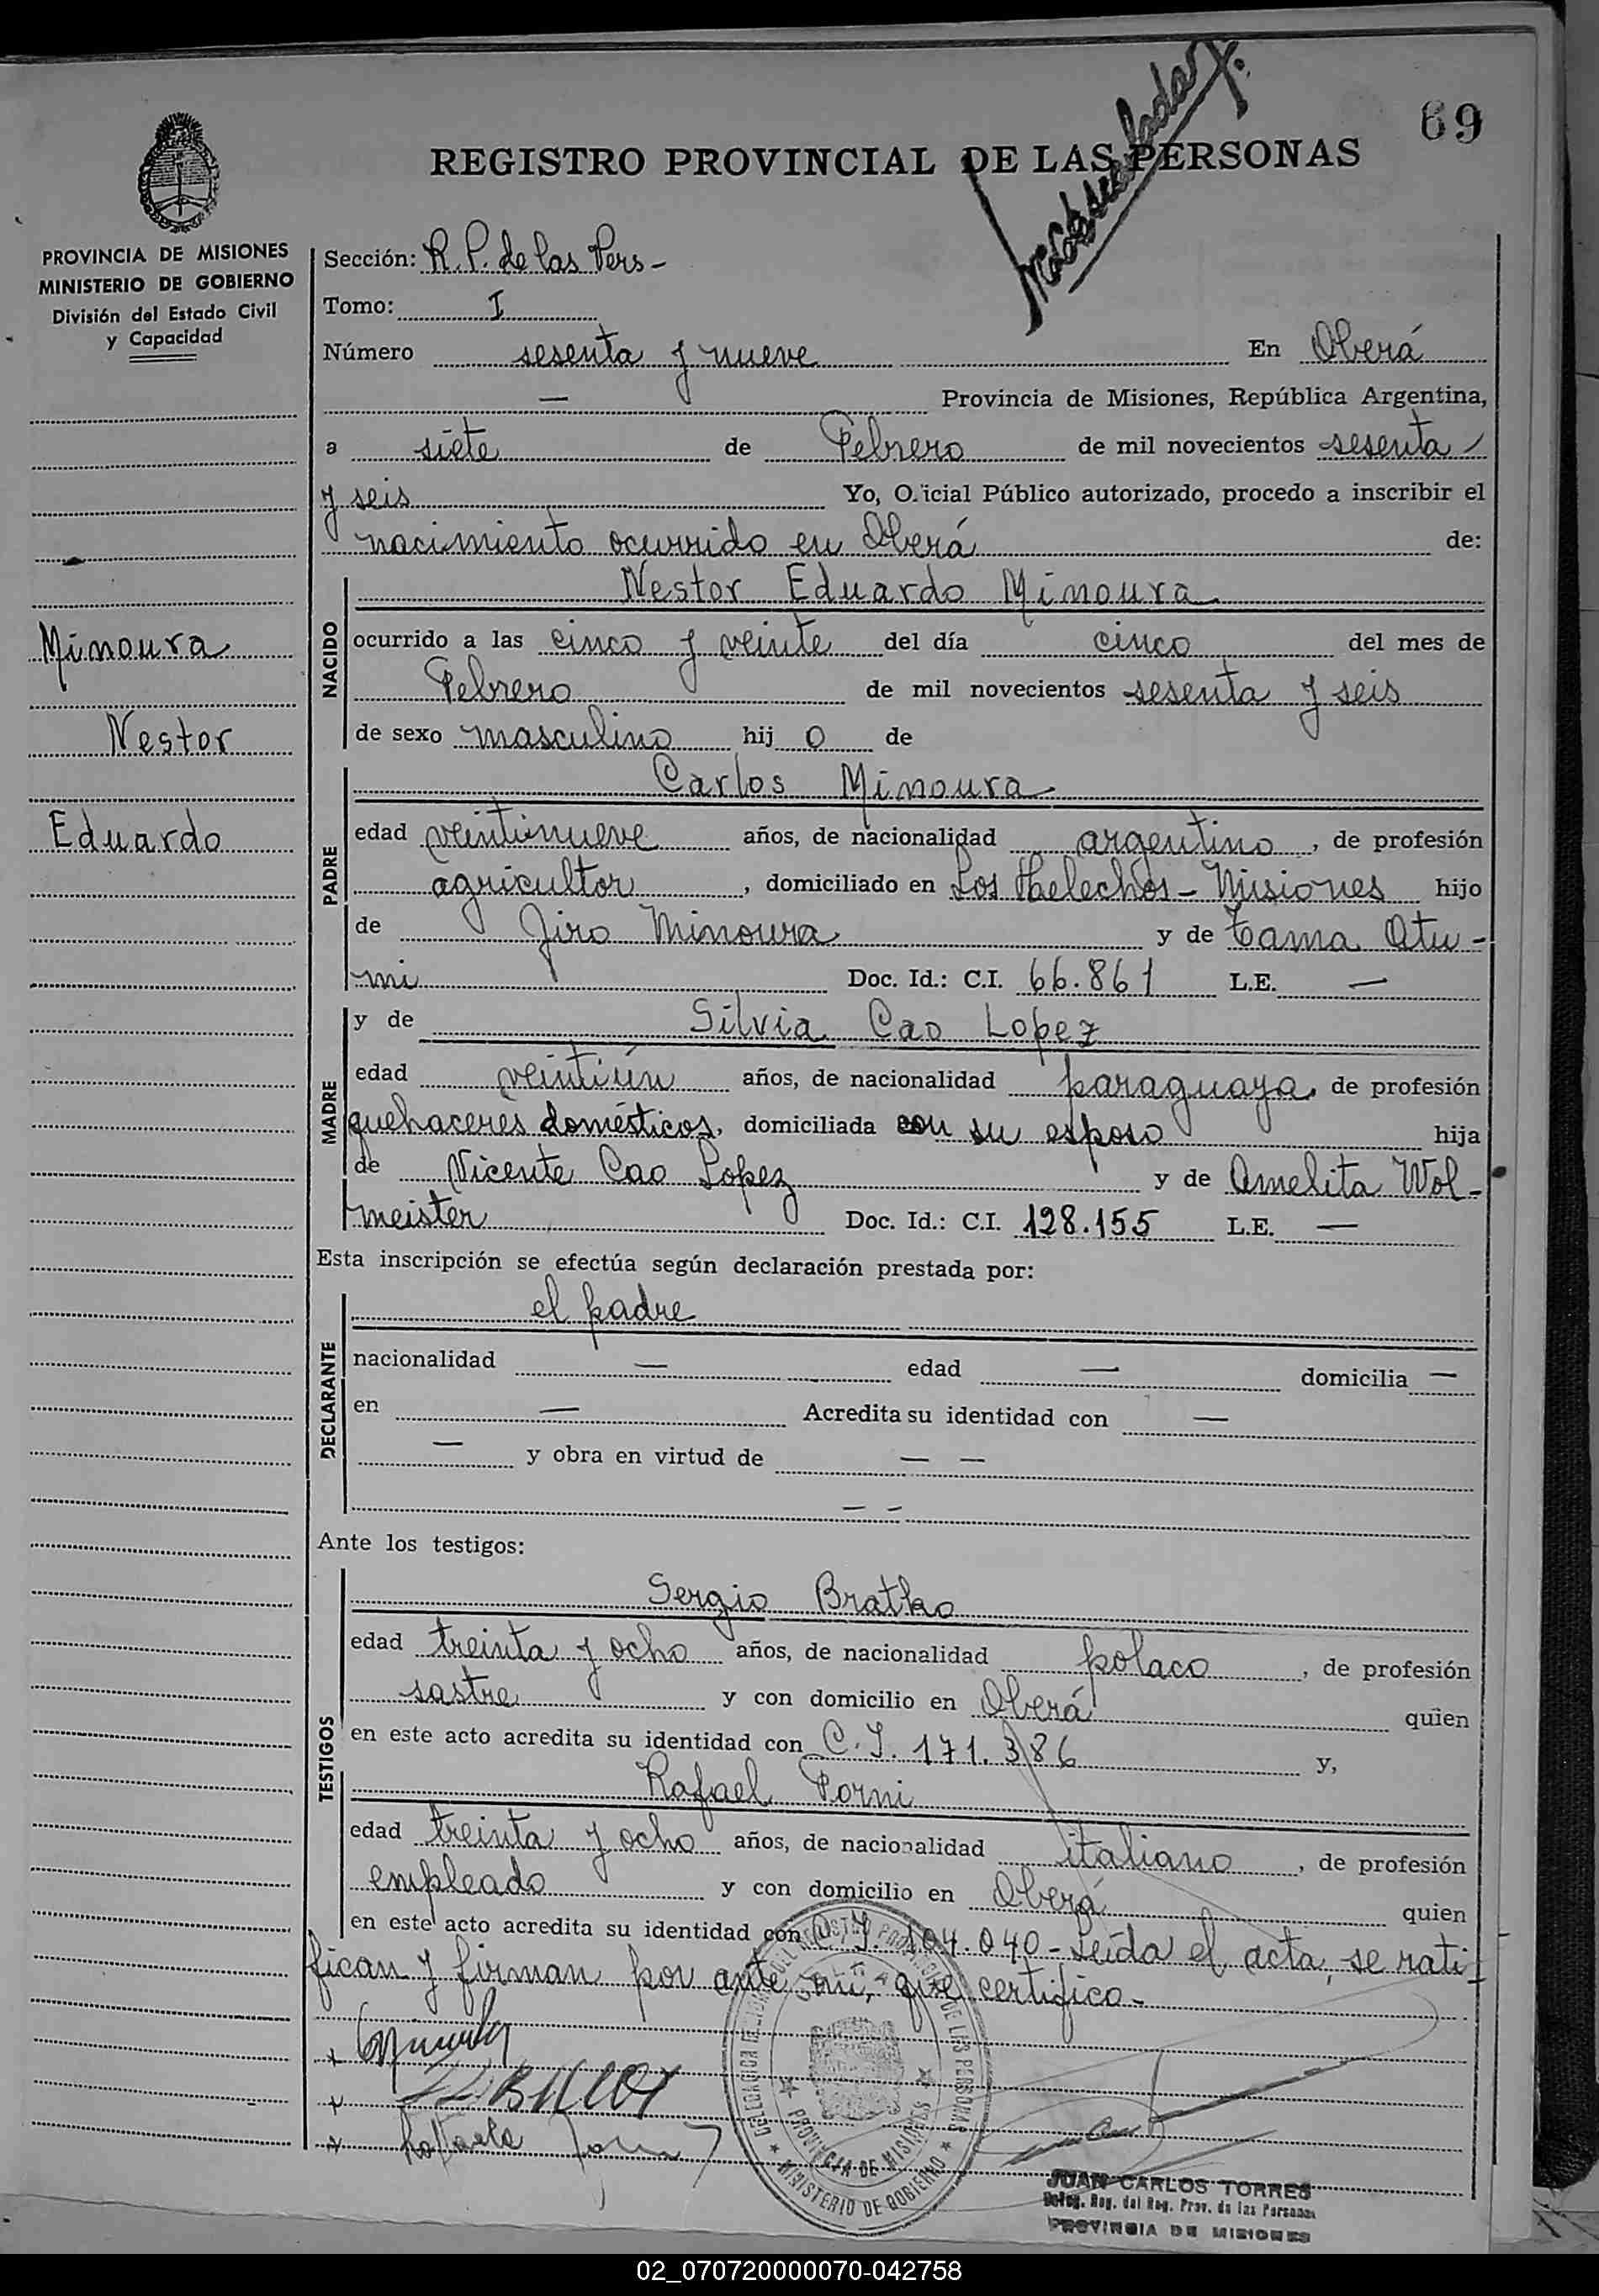 69
REGISTRO PROVINCIAL DE LAS PERSONAS
PROVINCIA DE MISIONES
MINISTERIO DE GOBIERNO
División del Estado Civil
y Capacidad
Minoura
Nestor
Eduardo
Sección: R. P. de las Pers-
Tomo: I
Número sesenta y nueve En Oberá
— Provincia de Misiones, República Argentina,
a siete de Febrero de mil novecientos sesenta
y seis Yo, Oficial Público autorizado, procedo a inscribir el
nacimiento ocurrido en Oberá de:
NACIDO
Nestor Eduardo Minoura
ocurrido a las cinco y veinte del día cinco del mes de
Febrero de mil novecientos sesenta y seis
de sexo masculino hij o de
PADRE
Carlos Minoura
edad veintinueve años, de nacionalidad argentino, de profesión
agricultor, domiciliado en Los Helechos - Misiones hijo
de Jiro Minoura y de Tama Atu-
mi Doc. Id.: C.I. 66.861 L.E. —
MADRE
y de Silvia Cao Lopez
edad veintiún años, de nacionalidad paraguaya, de profesión
quehaceres domésticos, domiciliada con su esposo hija
de Vicente Cao Lopez y de Amelita Wol-
meister Doc. Id.: C.I. 128.155 L.E. —
Esta inscripción se efectúa según declaración prestada por:
DECLARANTE
el padre
nacionalidad — edad — domicilia —
en — Acredita su identidad con —
— y obra en virtud de — —
— -
Ante los testigos:
TESTIGOS
Sergio Bratko
edad treinta y ocho años, de nacionalidad polaco, de profesión
sastre y con domicilio en Oberá quien
en este acto acredita su identidad con C.I. 171.386 y,
Rafael Forni
edad treinta y ocho años, de nacionalidad italiano, de profesión
empleado y con domicilio en Oberá quien
en este acto acredita su identidad con C.I. 104.040 - Leída el acta, se rati-
fican y firman por ante mi, que certifico-
PROVINCIA DE MISIONES
MINISTERIO DE GOBIERNO
JUAN CARLOS TORRES
Deleg. Reg. del Reg. Prov. de las Personas
PROVINCIA DE MISIONES
02_070720000070-042758